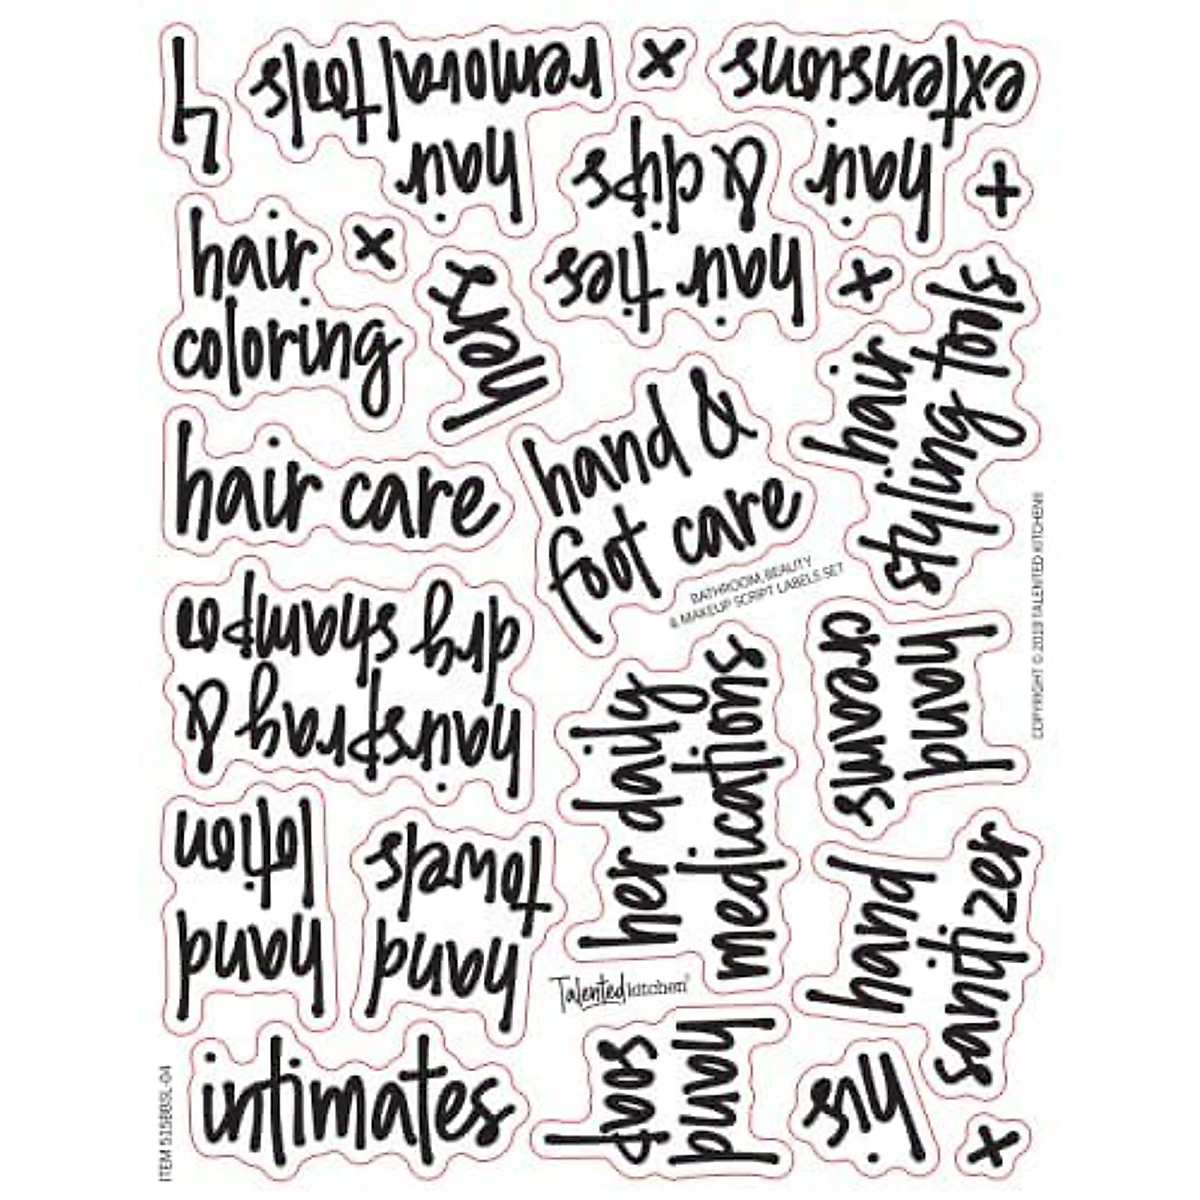 4
hair
removal tools
x
hair
extensions
+
hair
coloring
x
hers
hair ties
& clips
x
hair
styling tools
hair care
hand &
foot care
BATHROOM, BEAUTY
& MAKEUP SCRIPT LABELS SET
COPYRIGHT © 2019 TALENTED KITCHEN®
hairspray &
dry shampoo
her daily
medications
hand
creams
hand
lotion
hand
towels
hand
sanitizer
Talented kitchen®
ITEM 515BBSL-04
intimates
hand
soap
his
x